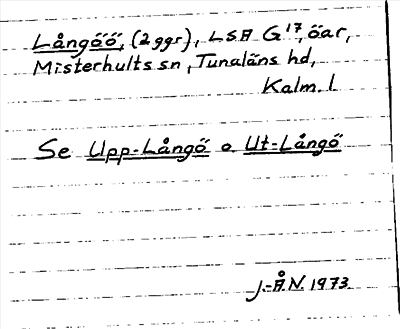 Långöö, (2 ggr), LSA G17, öar,
Misterhults sn, Tunaläns hd,
Kalm. l.
Se Upp-Långö o Ut-Långö
J.-Å.N. 1973